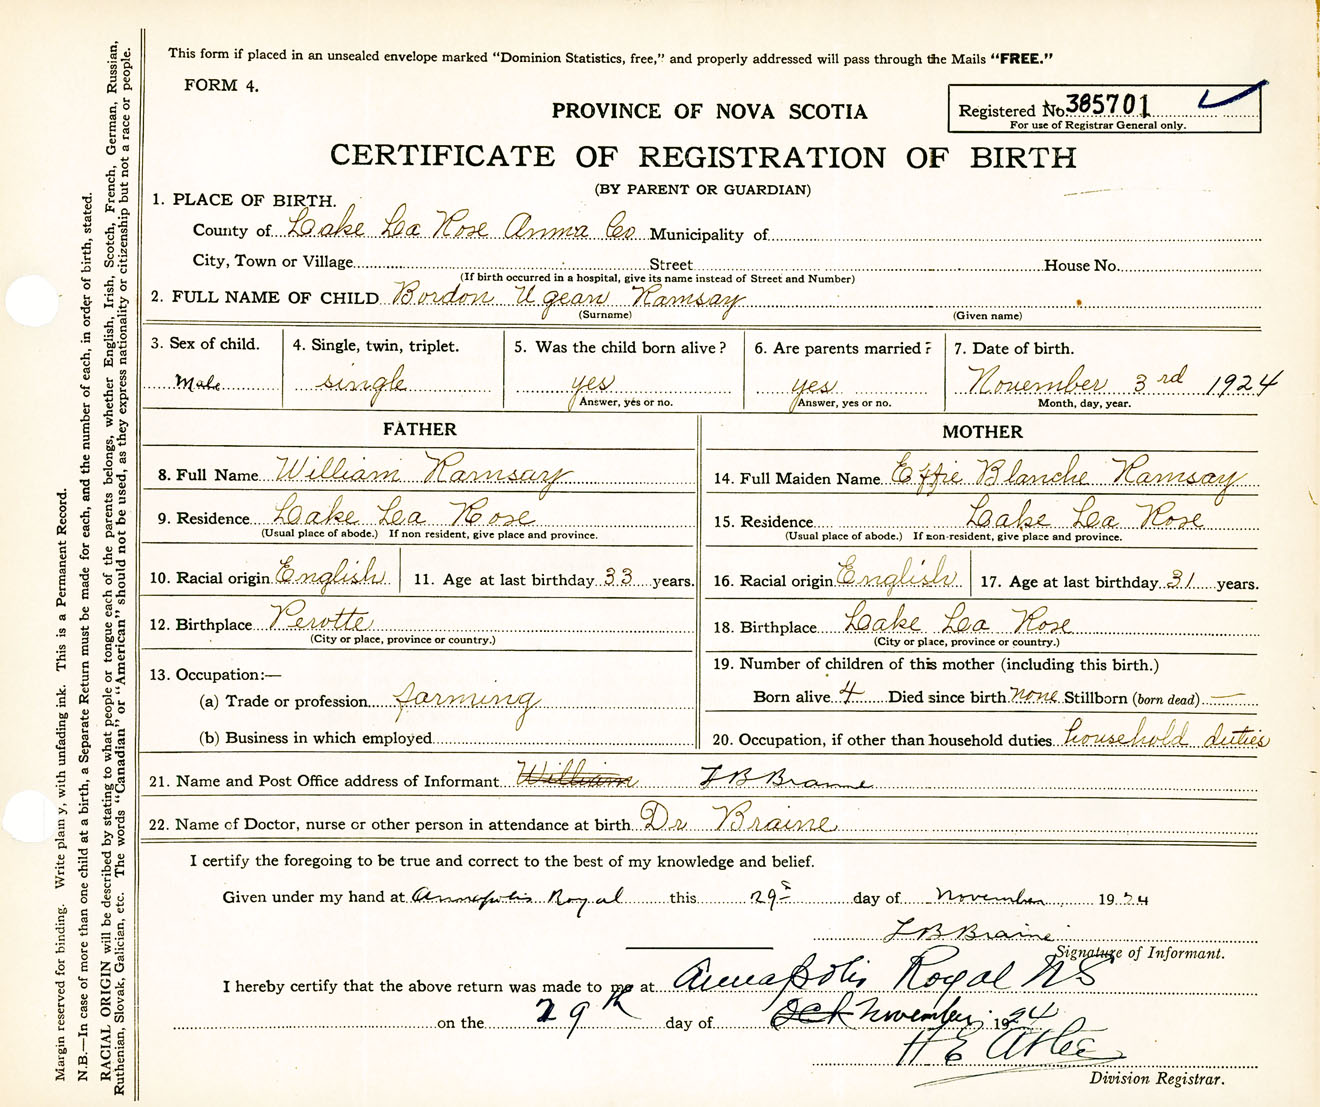 This form if placed in an unsealed envelope marked "Dominion Statistics, free," and properly addressed will pass through the Mails "FREE."
FORM 4.
PROVINCE OF NOVA SCOTIA
Registered No. 385701
For use of Registrar General only.
CERTIFICATE OF REGISTRATION OF BIRTH
(BY PARENT OR GUARDIAN)
1. PLACE OF BIRTH.
County of Lake La Rose Anna Co Municipality of
City, Town or Village Street House No.
(If birth occurred in a hospital, give its name instead of Street and Number)
2. FULL NAME OF CHILD Bordon Ugean Ramsay
(Surname) (Given name)
3. Sex of child. 4. Single, twin, triplet. 5. Was the child born alive? 6. Are parents married? 7. Date of birth.
Male single yes yes November 3rd 1924
Answer, yes or no. Answer, yes or no. Month, day, year.
FATHER
8. Full Name William Ramsay
9. Residence Lake La Rose
(Usual place of abode.) If non resident, give place and province.
10. Racial origin English 11. Age at last birthday 33 years.
12. Birthplace Perotte
(City or place, province or country.)
13. Occupation:—
(a) Trade or profession farming
(b) Business in which employed
MOTHER
14. Full Maiden Name Effie Blanche Ramsay
15. Residence Lake La Rose
(Usual place of abode.) If non-resident, give place and province.
16. Racial origin English 17. Age at last birthday 31 years.
18. Birthplace Lake La Rose
(City or place, province or country.)
19. Number of children of this mother (including this birth.)
Born alive 4 Died since birth none Stillborn (born dead) —
20. Occupation, if other than household duties household duties
21. Name and Post Office address of Informant William L B Braine
22. Name of Doctor, nurse or other person in attendance at birth Dr Braine
I certify the foregoing to be true and correct to the best of my knowledge and belief.
Given under my hand at Annapolis Royal this 29th day of November 1924
L B Braine
Signature of Informant.
I hereby certify that the above return was made to me at Annapolis Royal NS
on the 29th day of Oct November 1924
H E
Division Registrar.
Margin reserved for binding. Write plainly, with unfading ink. This is a Permanent Record.
N.B.—In case of more than one child at a birth, a Separate Return must be made for each, and the number of each, in order of birth, stated.
RACIAL ORIGIN will be described by stating to what people or tongue each of the parents belongs, whether English, Irish, Scotch, French, German, Russian,
Ruthenian, Slovak, Galician, etc. The words "Canadian" or "American" should not be used, as they express nationality or citizenship but not a race or people.